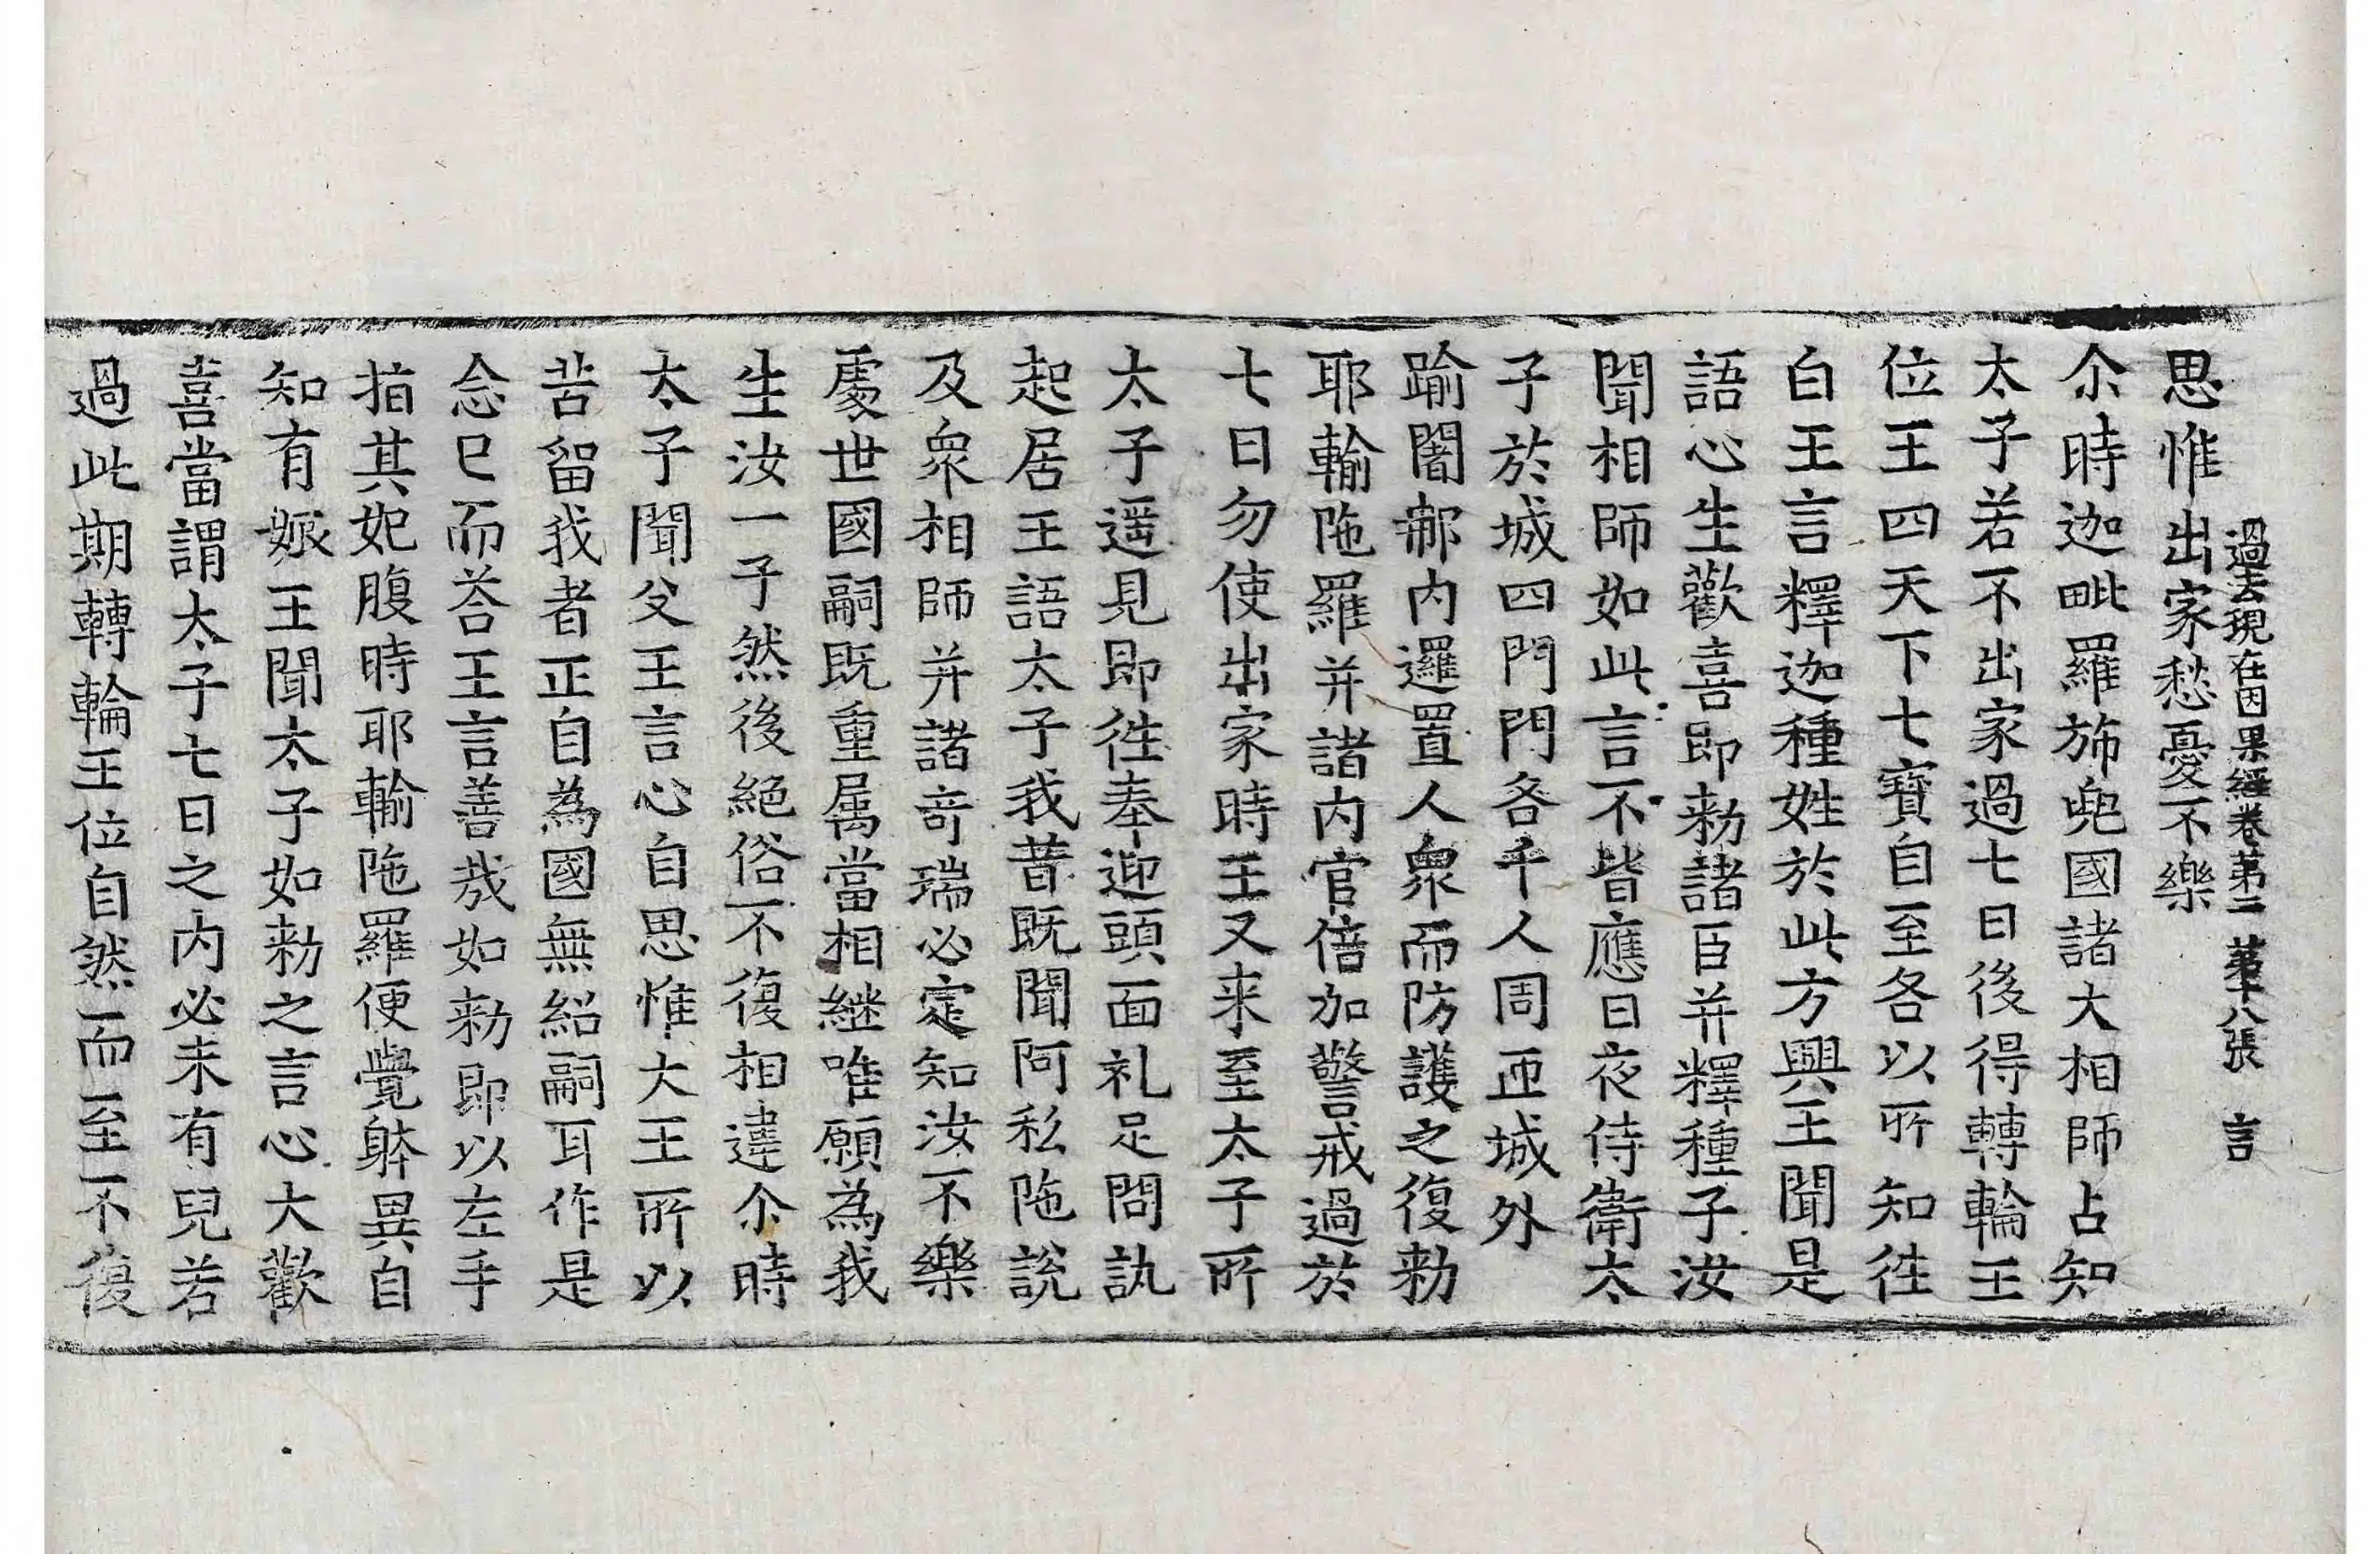 過去現在因果經卷第二 第十八張 言
思惟出家愁憂不樂
尒時迦毗羅斾兜國諸大相師占知
太子若不出家過七日後得轉輪王
位王四天下七寶自至各以所知徃
白王言釋迦種姓於此方興王聞是
語心生歡喜即勑諸臣并釋種子汝
聞相師如此言不皆應日夜侍衛太
子於城四門門各千人周帀城外
踰闍䣋内邏置人衆而防護之復勑
耶輸陁羅并諸内官倍加警戒過於
七日勿使出家時王又来至太子所
太子遥見即徃奉迎頭面礼足問訊
起居王語太子我昔既聞阿私陁說
及衆相師并諸竒瑞必定知汝不樂
處世國嗣既重属當相継唯願為我
生汝一子然後絕俗不復相違尒時
太子聞父王言心自思惟大王所以
苦留我者正自為國無紹嗣耳作是
念已而荅王言善哉如勑即以左手
指其妃腹時耶輸陁羅便覺躰異自
知有娠王聞太子如勑之言心大歡
喜當謂太子七日之内必未有兒若
過此期轉輪王位自然而至不復